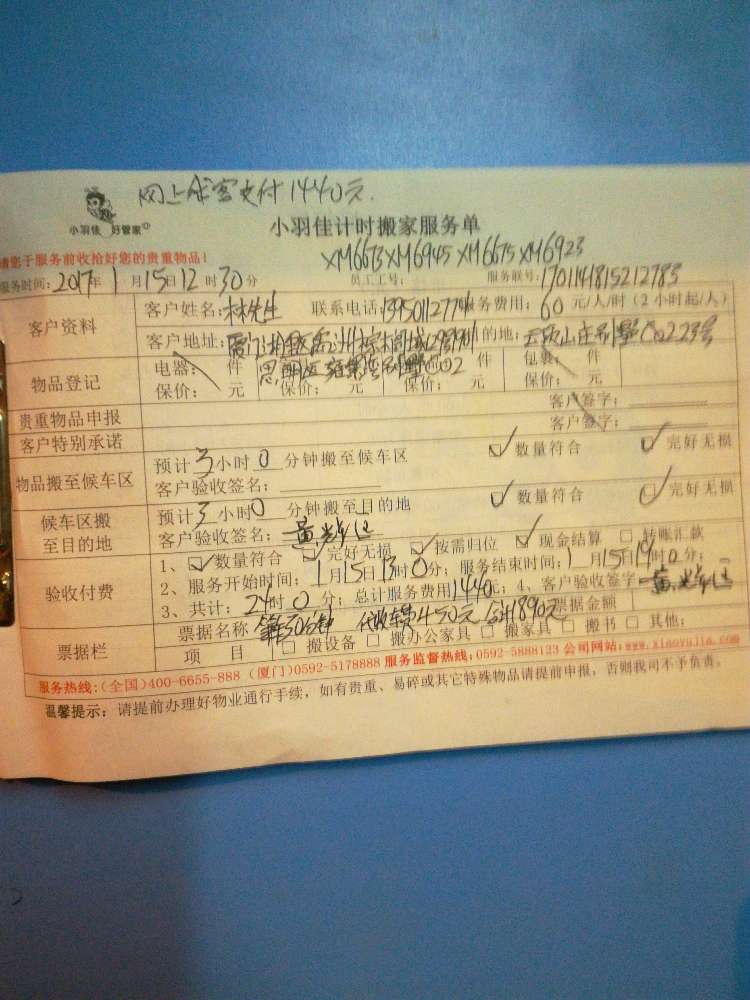 网上成客支付1440元
小羽佳 好管家
小羽佳计时搬家服务单
请您于服务前收拾好您的贵重物品!
XM6673 XM6945 XM6675 XM6923
服务时间: 2017年1月15日12时30分 员工工号: 服务联号: 1701141815212783
客户资料
客户姓名: 林先生 联系电话: 服务费用: 60元/人/时(2小时起/人)
客户地址: 的地: 223号
思明区
物品登记
电器: 件 件 包裹: 件
保价: 元 保价: 元 保价: 元
贵重物品申报 客户签字:
客户特别承诺 客户签字:
物品搬至候车区
预计3小时0分钟搬至候车区 数量符合 完好无损
客户验收签名:
候车区搬至目的地
预计3小时0分钟搬至目的地 数量符合 完好无损
客户验收签名: 黄
验收付费
1、数量符合 完好无损 按需归位 现金结算 转账汇款
2、服务开始时间: 1月15日13时0分; 服务结束时间: 1月15日19时0分;
3、共计: 24时0分; 总计服务费用1440元; 4、客户验收签字 黄
票据栏
票据名称 30分钟 代收车费450元 合计1890元 票据金额
项 目 搬设备 搬办公家具 搬家具 搬书 其他:
服务热线:(全国)400-6655-888 (厦门)0592-5178888 服务监督热线: 0592-5888123 公司网站: www.xiaoyujia.com
温馨提示: 请提前办理好物业通行手续, 如有贵重、易碎或其它特殊物品请提前申报, 否则我司不予负责。